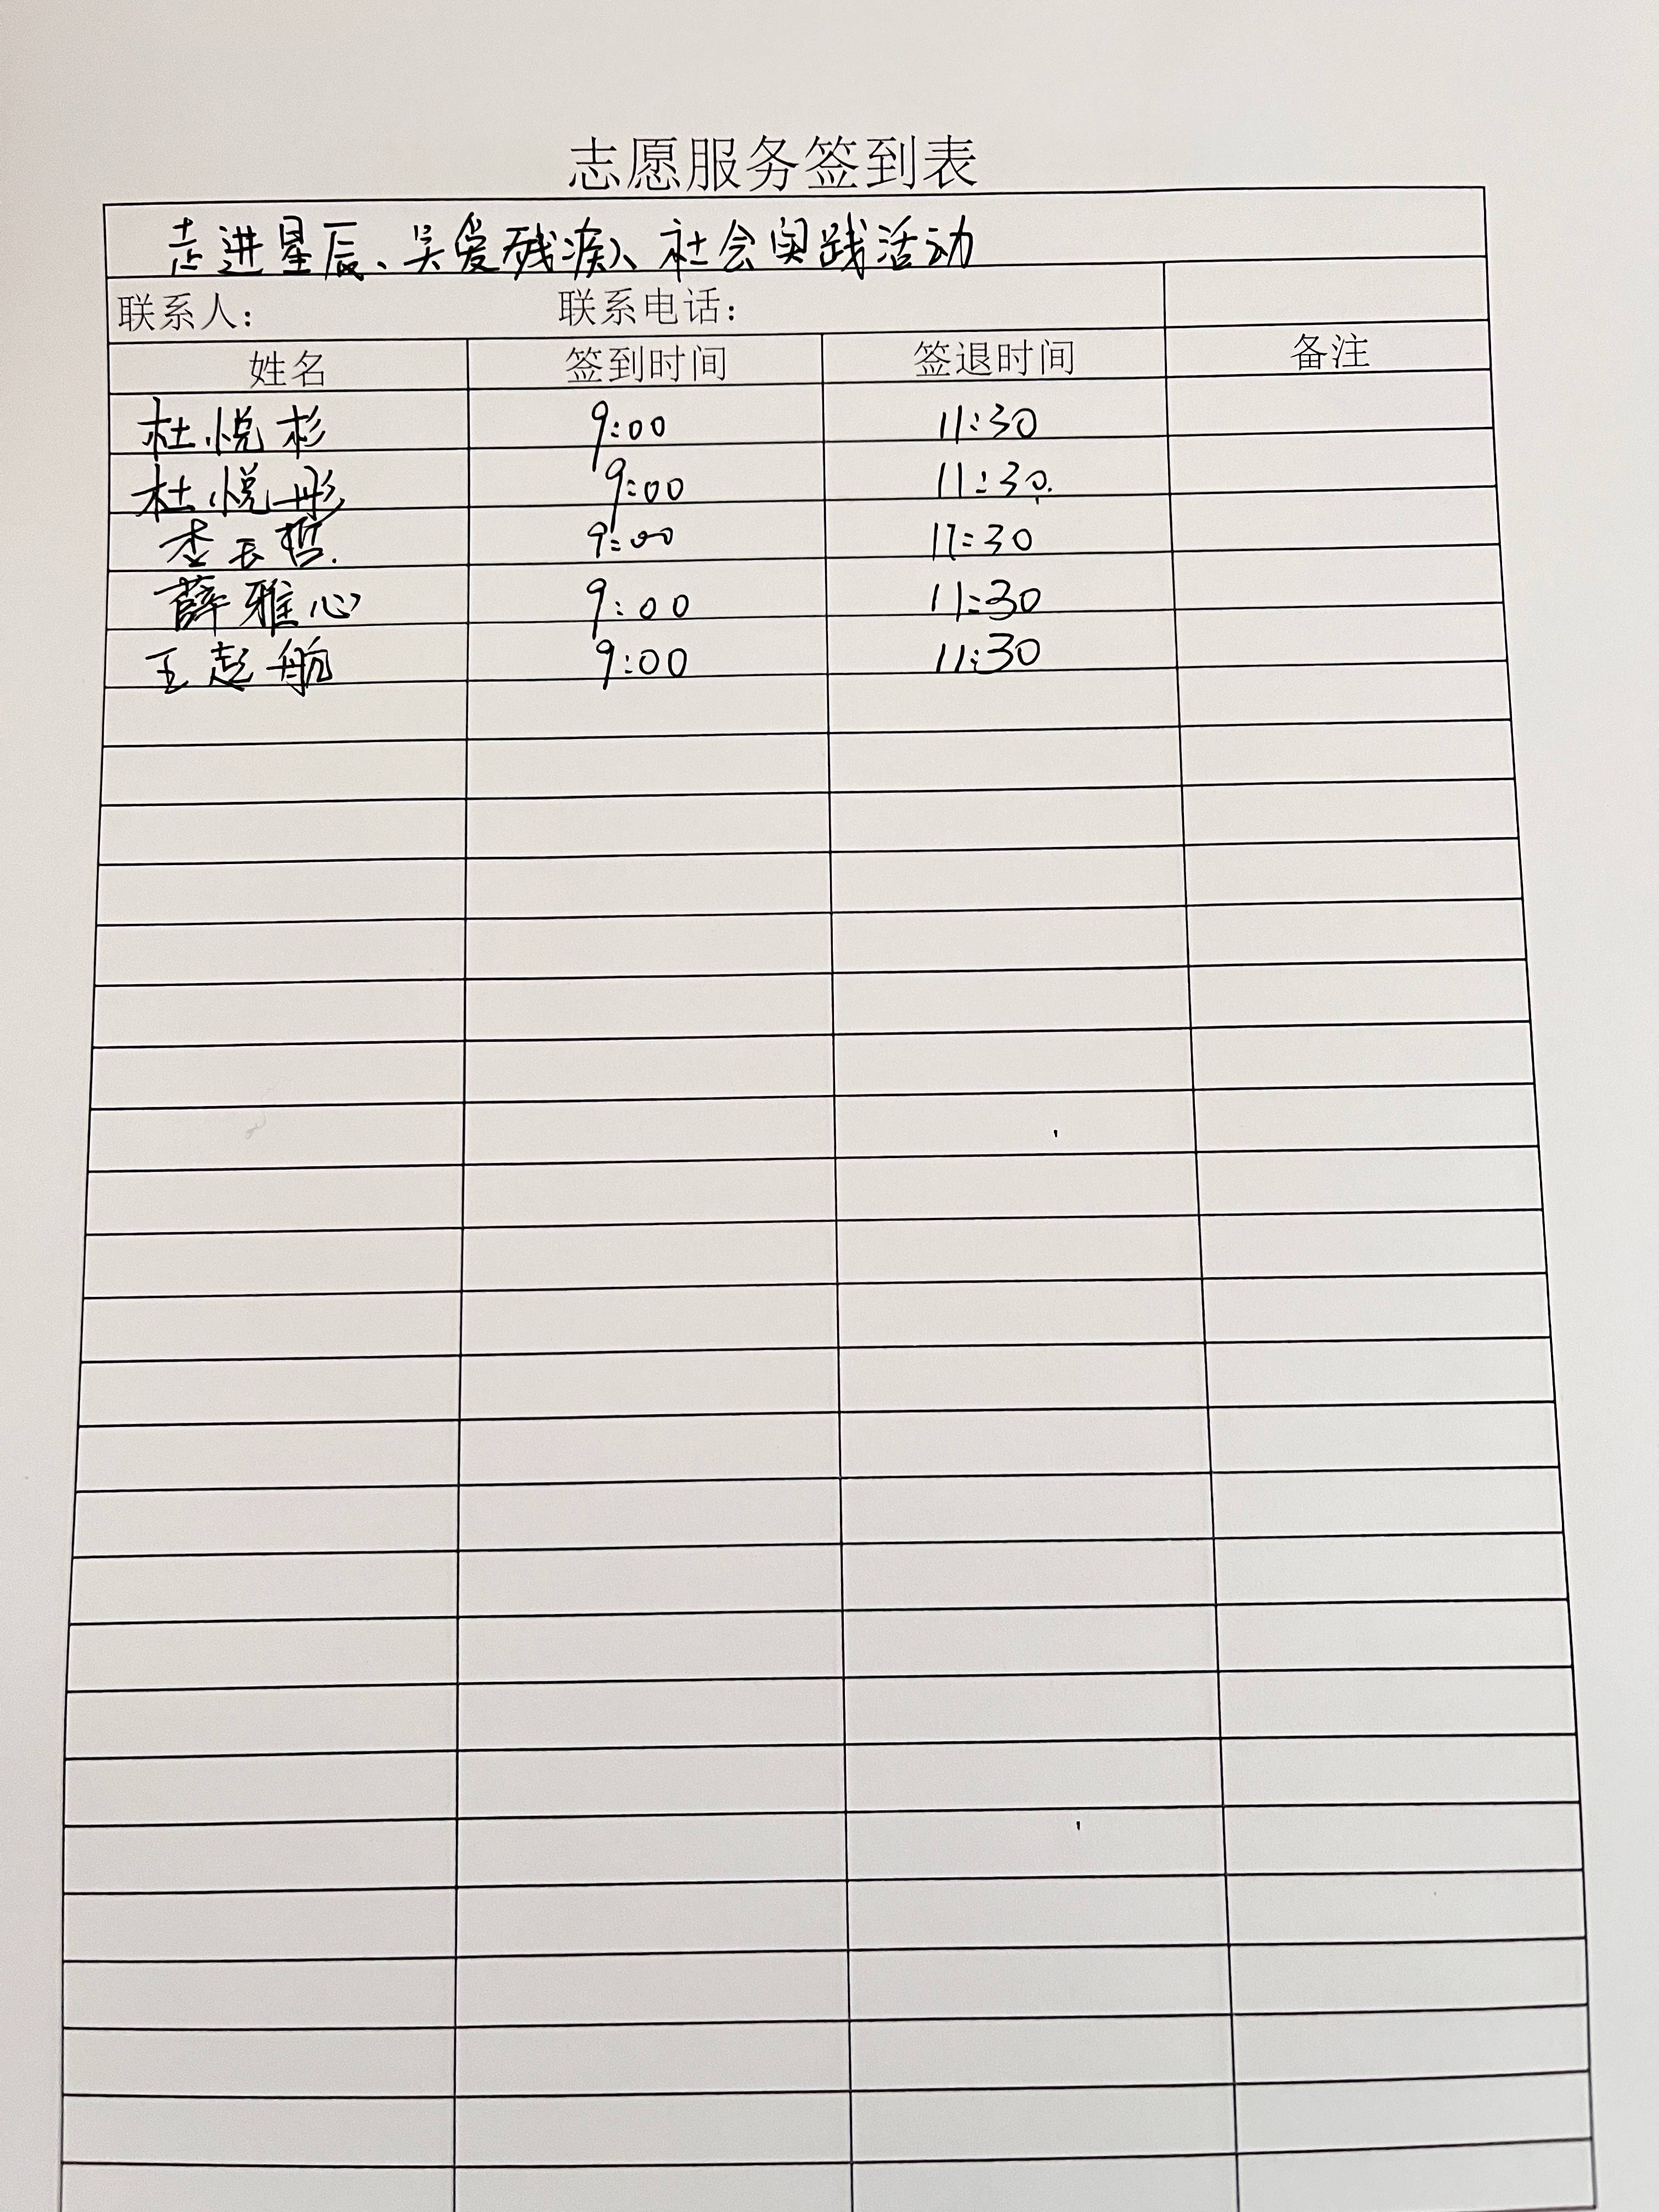 志愿服务签到表
走进星辰、关爱残疾人、社会实践活动
联系人: 联系电话:
姓名 签到时间 签退时间 备注
杜悦杉 9:00 11:30
杜悦彤 9:00 11:30.
李 哲. 9:00 11:30
薛雅心 9:00 11:30
王起航 9:00 11:30